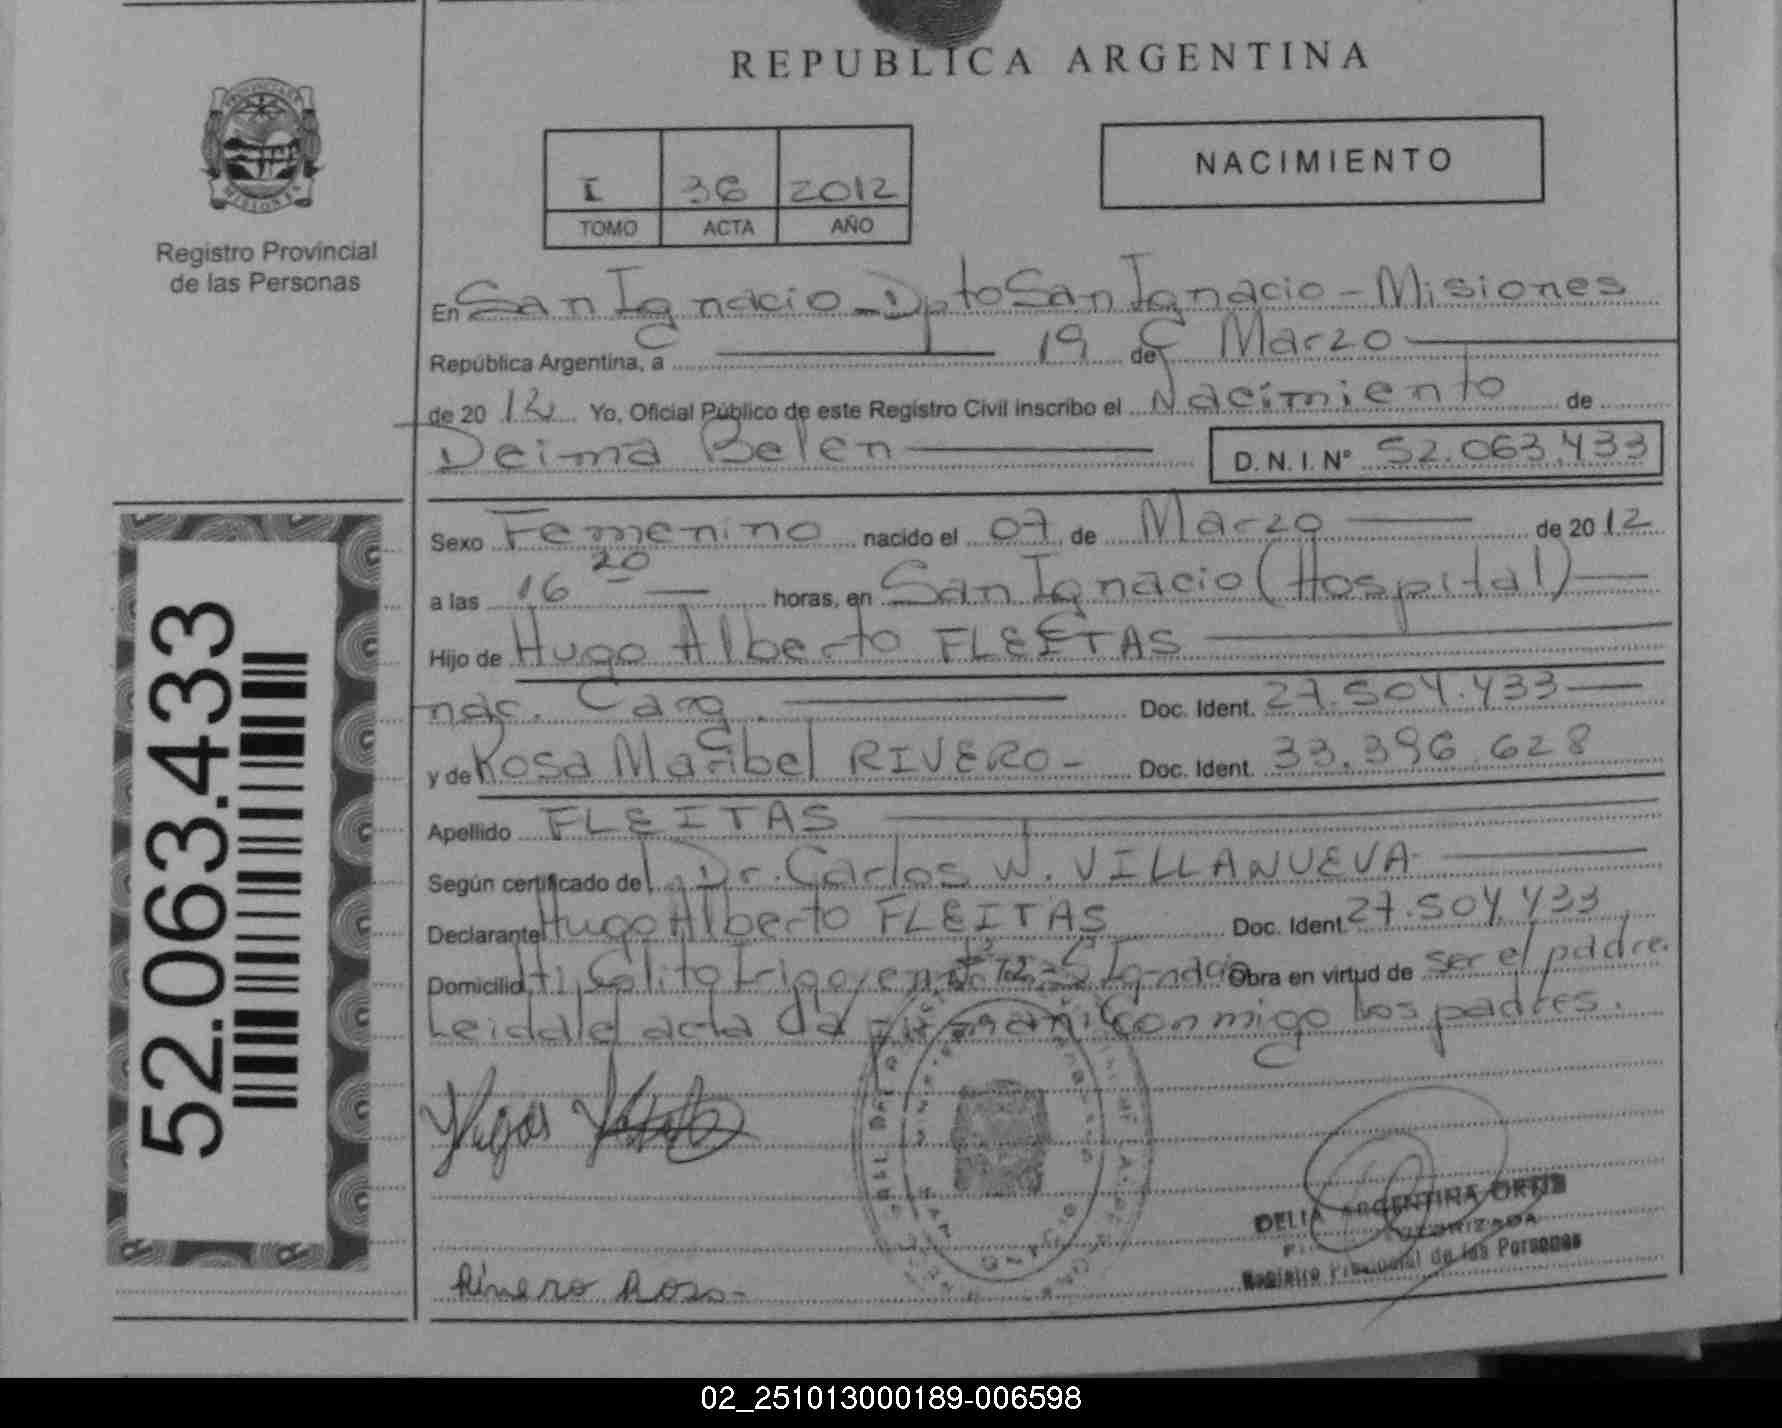 REPUBLICA ARGENTINA
PROVINCIA DE MISIONES
Registro Provincial
de las Personas
I 36 2012
TOMO ACTA AÑO
NACIMIENTO
En San Ignacio - Dpto San Ignacio - Misiones
República Argentina, a 19 de Marzo
de 20 12 Yo, Oficial Público de este Registro Civil inscribo el Nacimiento de
Deima Belen D. N. I. Nº 52.063.433
Sexo Femenino nacido el 07 de Marzo de 20 12
a las 16 20 horas, en San Ignacio (Hospital)
Hijo de Hugo Alberto FLEITAS
nac. Carg. Doc. Ident. 27.504.433
y de Rosa Maribel RIVERO - Doc. Ident. 33.396.628
Apellido FLEITAS
Según certificado del Dr. Carlos W. VILLANUEVA
Declarante Hugo Alberto FLEITAS Doc. Ident. 27.504.433
Domicilio Hipolito Irigoyen Obra en virtud de ser el padre.
Leida el acta la firman conmigo los padres.
52.063.433
DELIA ARGENTINA ORTIZ
AUTORIZADA
Registro Provincial de las Personas
Rivero Rosa
02_251013000189-006598